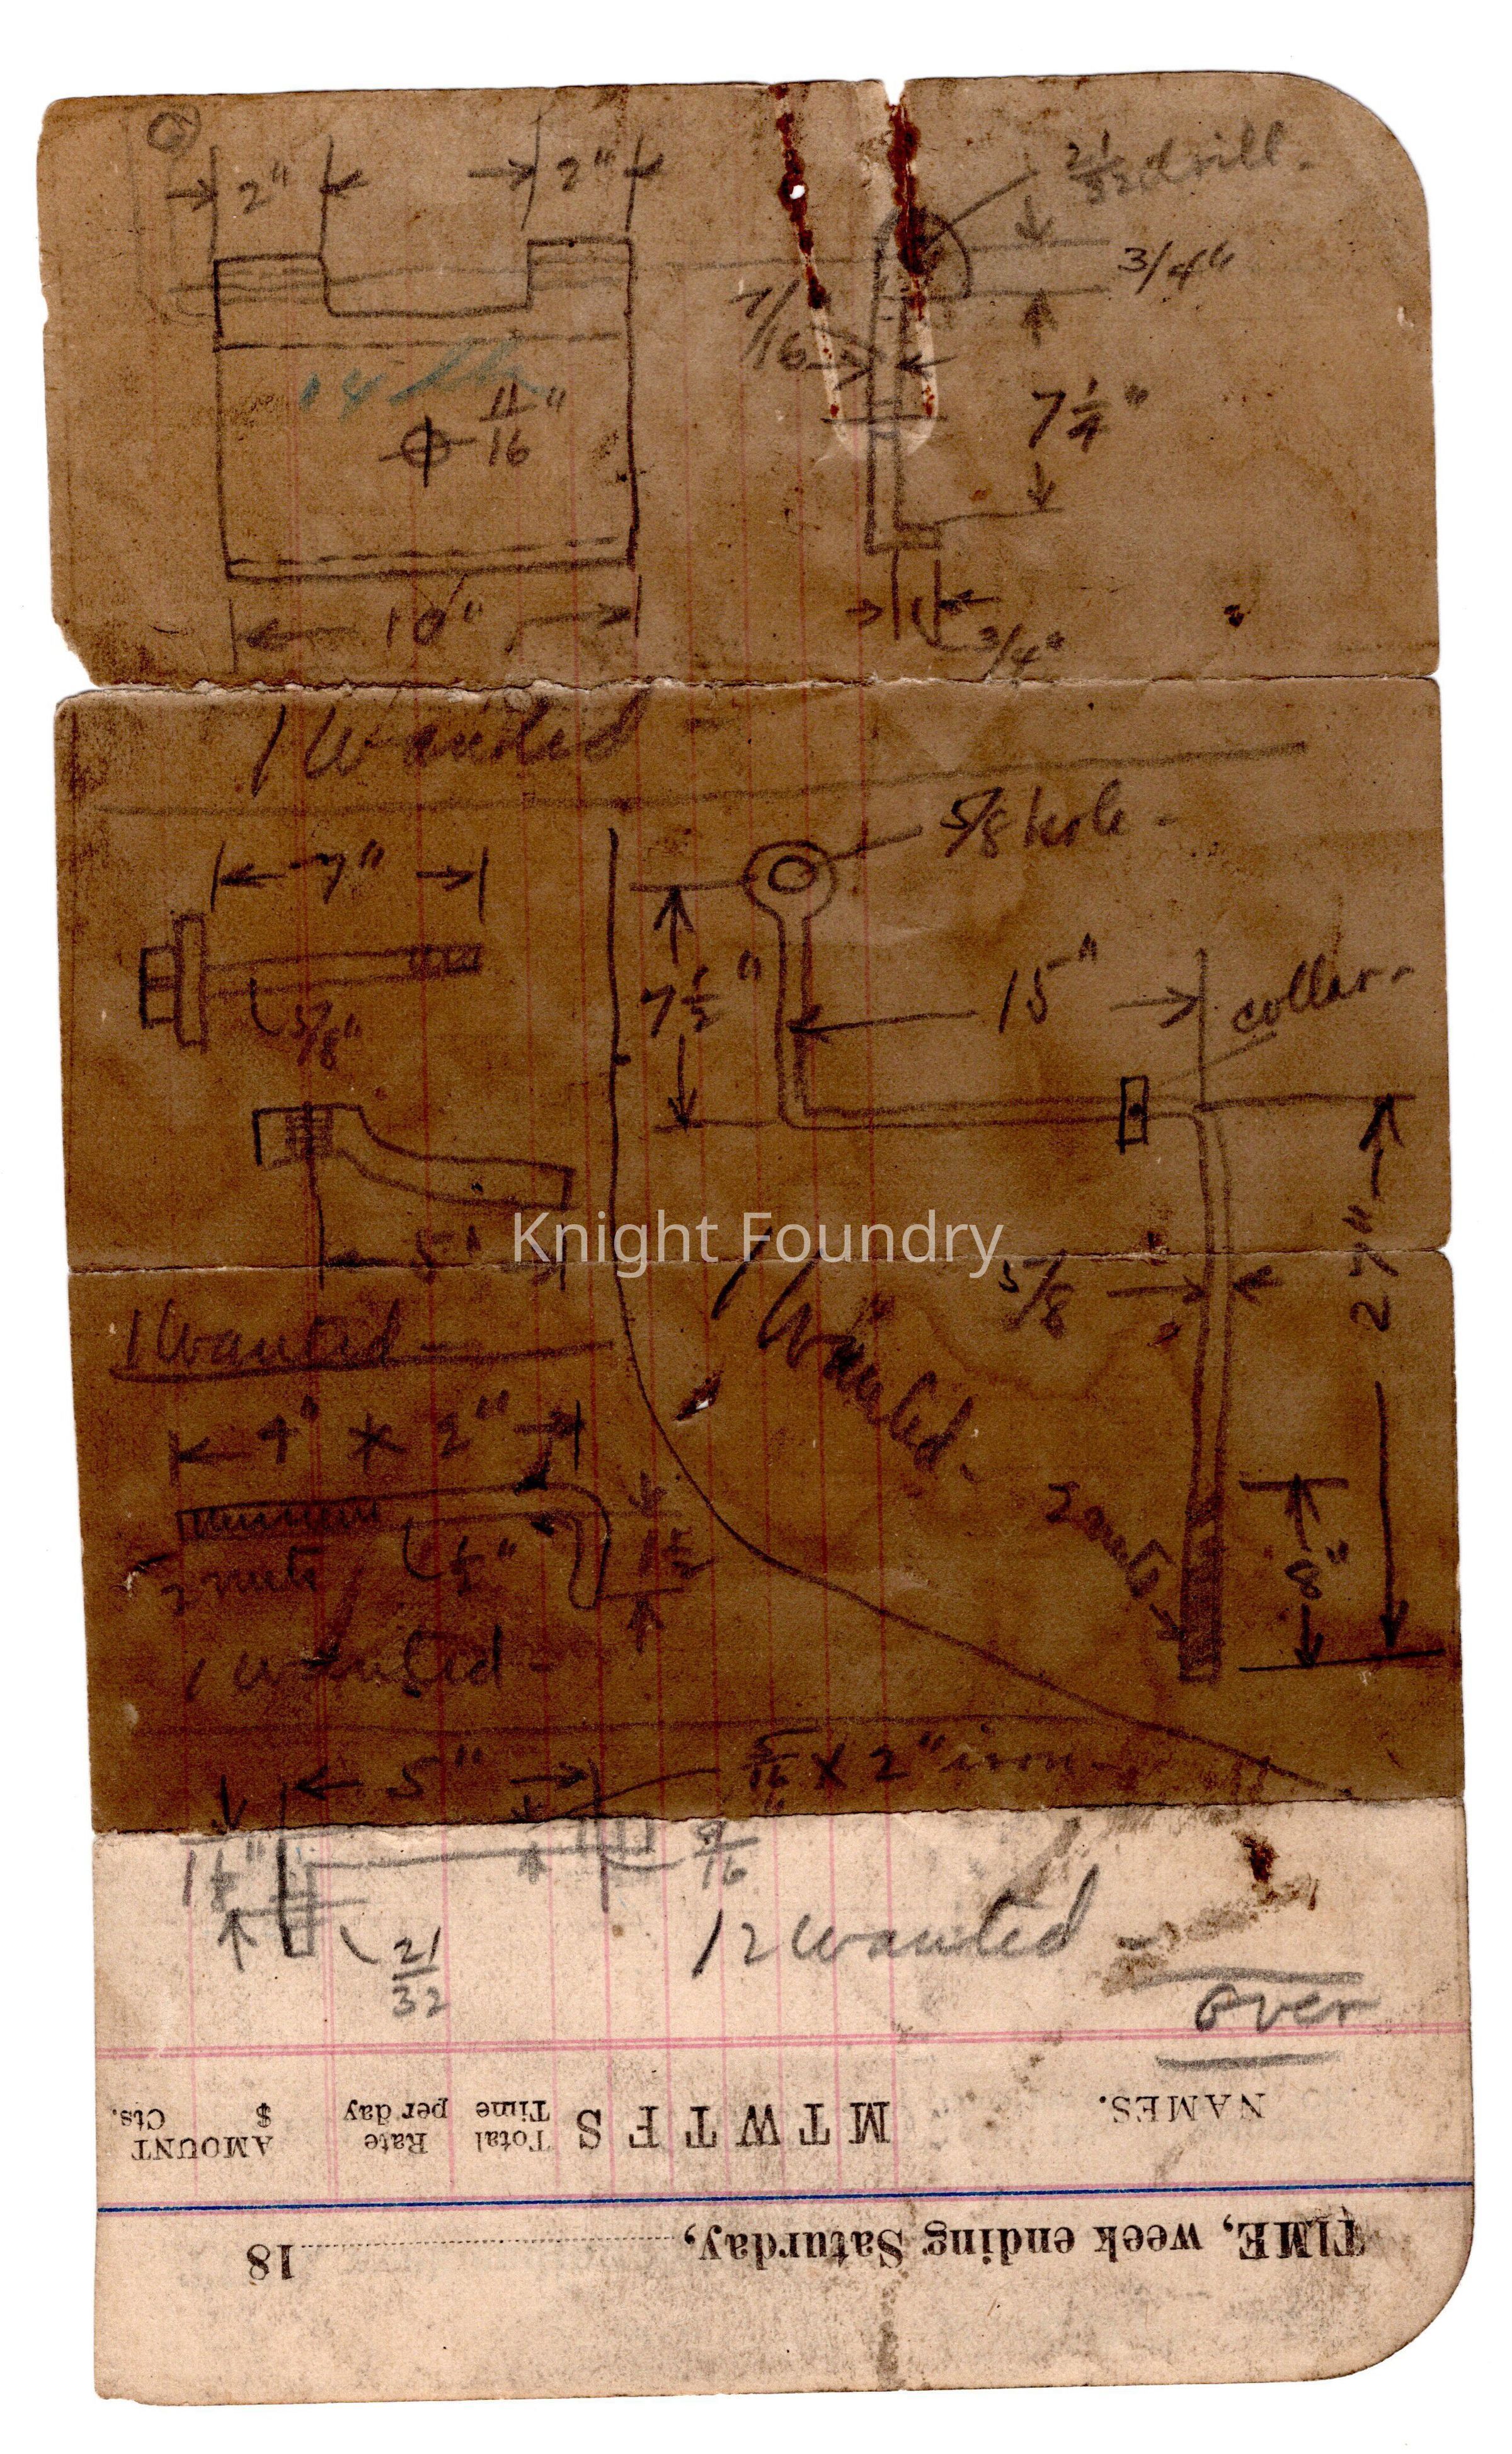 2" 2" 21/32 drill -
3/4"
7/16
14 lbs
11/16"
7 1/4"
10"
3/4"
1 Wanted -
5/8 hole -
7"
7 1/2" 15" collar -
5/8"
5"
Knight Foundry
1 Wanted -
5/8
27"
1 Wanted -
4" x 2"
1/2" 1 1/2
2 nuts
2 nuts
8"
1 Wanted -
5" 5/16 x 2" iron -
1 1/8" 9/16
21/32
12 Wanted -
over
TIME, week ending Saturday, 18
NAMES. M T W T F S Total Time Rate per day AMOUNT $ Cts.